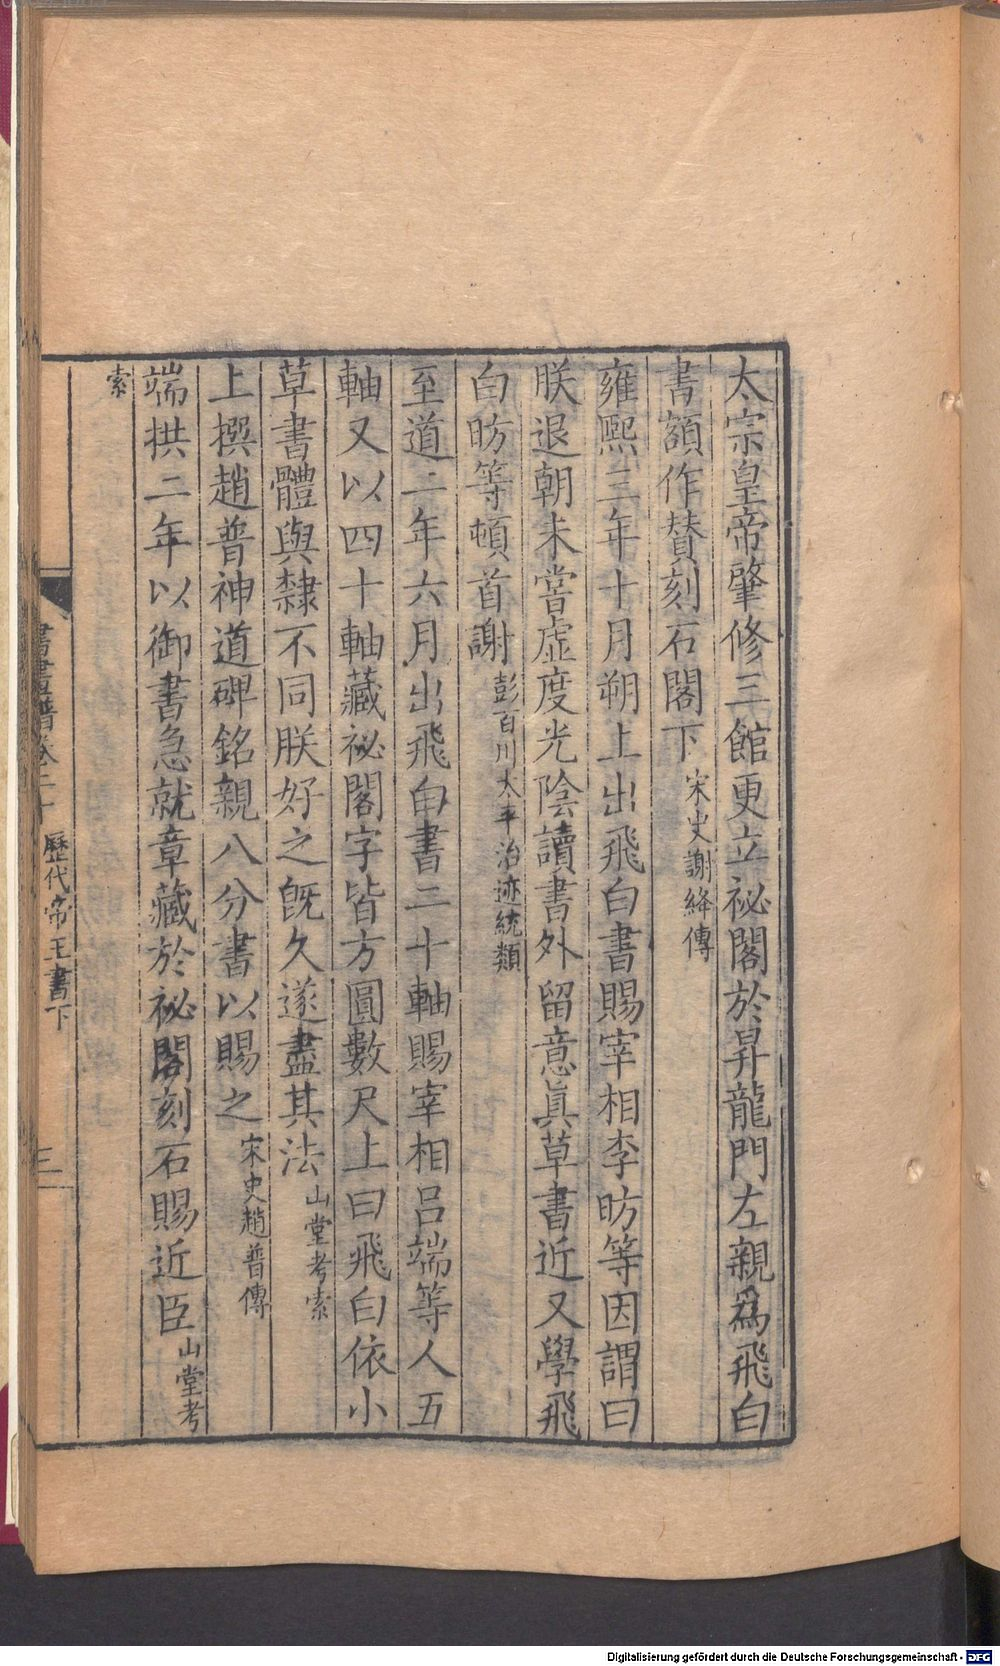 太宗皇帝肇修三館更立祕閣於昇龍門左親爲飛白
書額作贊刻石閣下宋史謝絳傳
雍熙三年十月朔上出飛白書賜宰相李昉等因謂曰
朕退朝未嘗虛度光陰讀書外留意眞草書近又學飛
白昉等頓首謝彭百川太平治迹統類
至道二年六月出飛白書二十軸賜宰相呂端等人五
軸又以四十軸藏祕閣字皆方圓數尺上曰飛白依小
草書體與隸不同朕好之旣久遂盡其法山堂考索
上撰趙普神道碑銘親八分書以賜之宋史趙普傳
端拱二年以御書急就章藏於祕閣刻石賜近臣山堂考
索
書畫譜卷二十 歷代帝王書下 三
Digitalisierung gefördert durch die Deutsche Forschungsgemeinschaft - DFG